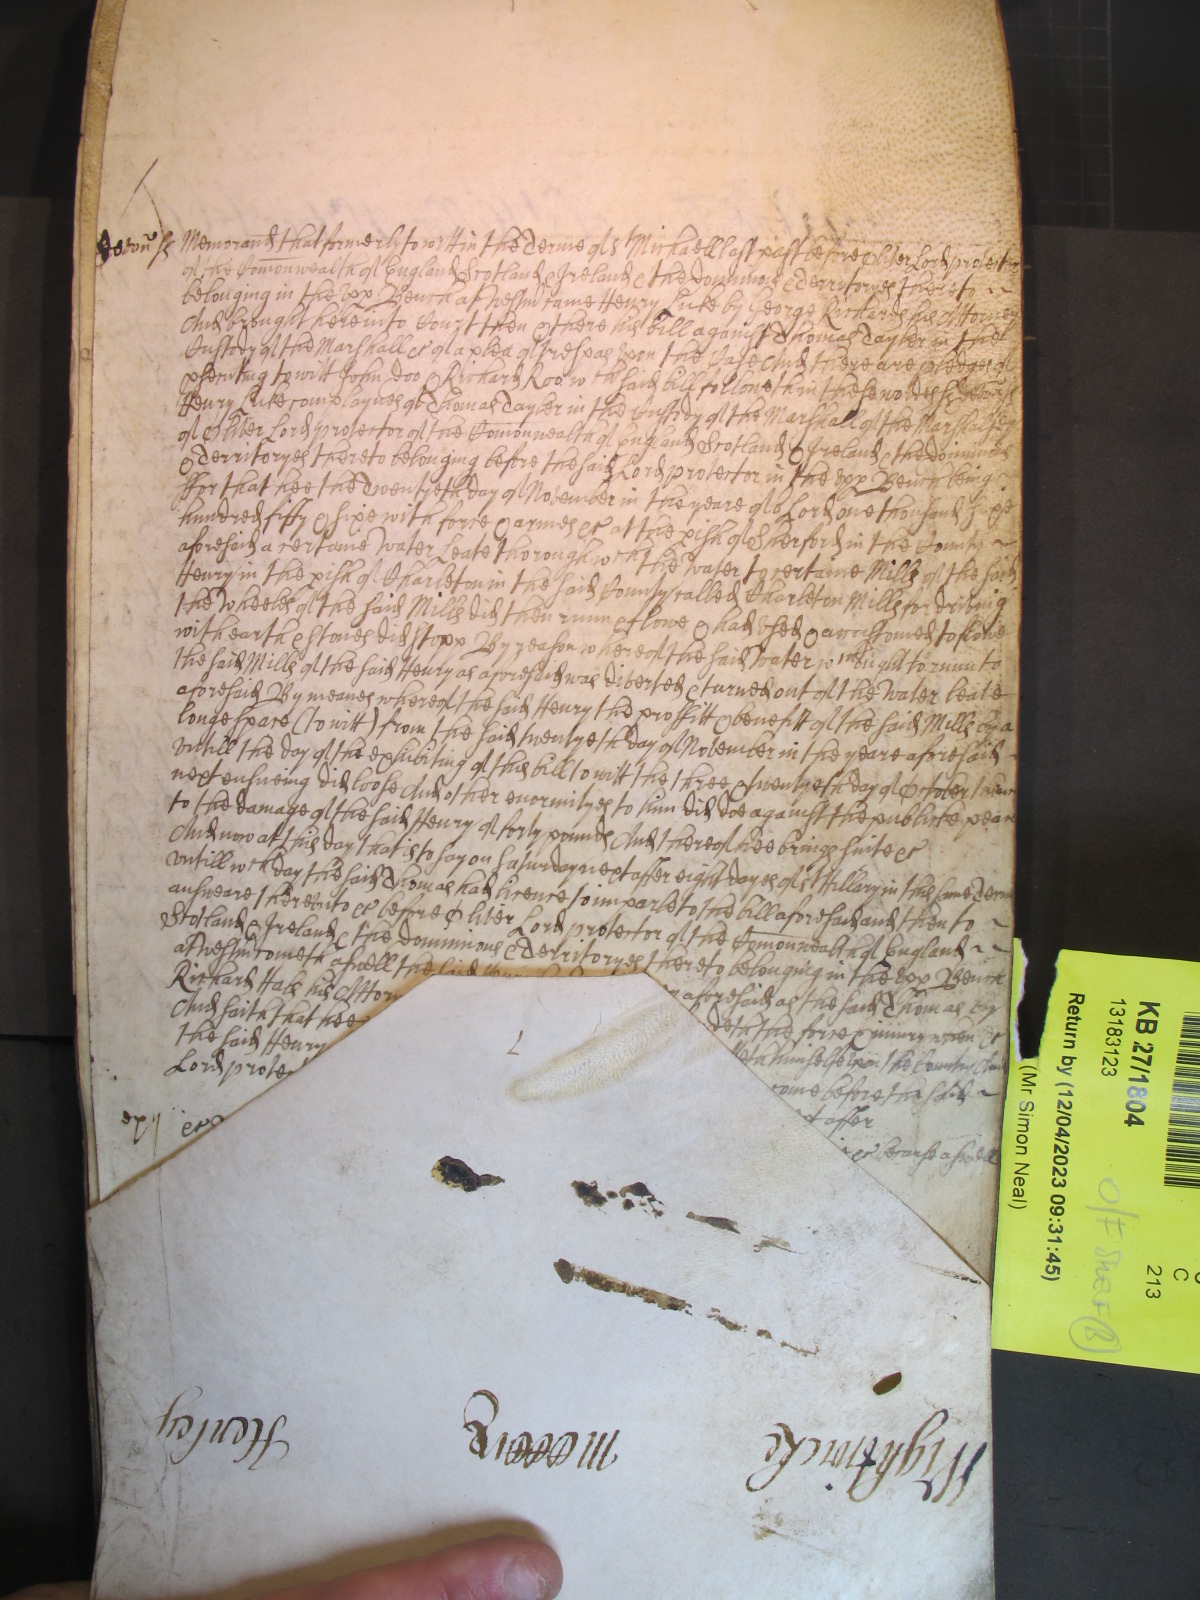 Devon ss Memorand that formerly to witt in the Terme of St Michaell last past before Oliver Lord protector
of the Comonwealth of England Scotland & Ireland & the dominions & Territoryes thereto
belonging in the Upp Bench at Westm came Henry Luke by George Richards his Attorney
And brought here into Court then & there his bill against Thomas Tayler in the
Custody of the Marshall &c of a plea of trespas upon the Case And there are pledges of
psecuting to witt John Doo & Richard Roo wch said bill followeth in these words ss Devon ss
Henry Luke complaynes of Thomas Tayler in the Custody of the Marshall of the Marshalsey
of Oliver Lord protector of the Comonwealth of England Scotland & Ireland & the dominions
& Territoryes thereto belonging before the said Lord protector in the Upp Bench being
ffor that hee the Twentyeth day of November in the yeare of or Lord one thousand sixe
hundred fifty & sixe with force & armes &c at the pish of Sherford in the County
aforesaid a certaine Water Leate thorough wch the Water to certaine Mills of the said
Henry in the pish of Charleton in the said County called Charleton Mills for driving
the Wheeles of the said Mills did then runn & flowe & had used & accustomed to flowe
with earth & stones did stopp By reason whereof the said Water wch ought to runn to
the said Mills of the said Henry as aforesaid was diverted & turned out of the Water leate
aforesaid By meanes whereof the said Henry the proffitt & benefitt of the said Mills by a
longe space (to witt) from the said twentyeth day of November in the yeare aforesaid
untill the day of the exhibiting of this bill to witt the three & twentyeth day of October then
next ensueing did loose And other enormityes to him did doe against the publicke peace
to the damage of the said Henry of forty pounds And thereof hee brings suite &c
And now at this day that is to say on Saturday next after eight dayes of St Hillary in this same Terme
untill wch day the said Thomas had licence to imparle to the bill aforesaid and then to
answeare thereunto &c before Oliver Lord protector of the Comonwealth of England
Scotland & Ireland & the dominions & Territoryes thereto belonging in the Upp Bench
at Westm cometh aswell the said aforesaid as the said Thomas by
Richard Hals his Attorn deth the force & iniury when &c
And saith that hee himselfe upon the Country And
the said Henry come before the said
Lord protec after
&c because aswell
Wightwicke
Henley
KB 27/1804
13183123
Return by (12/04/2023 09:31:45)
(Mr Simon Neal)
C
213